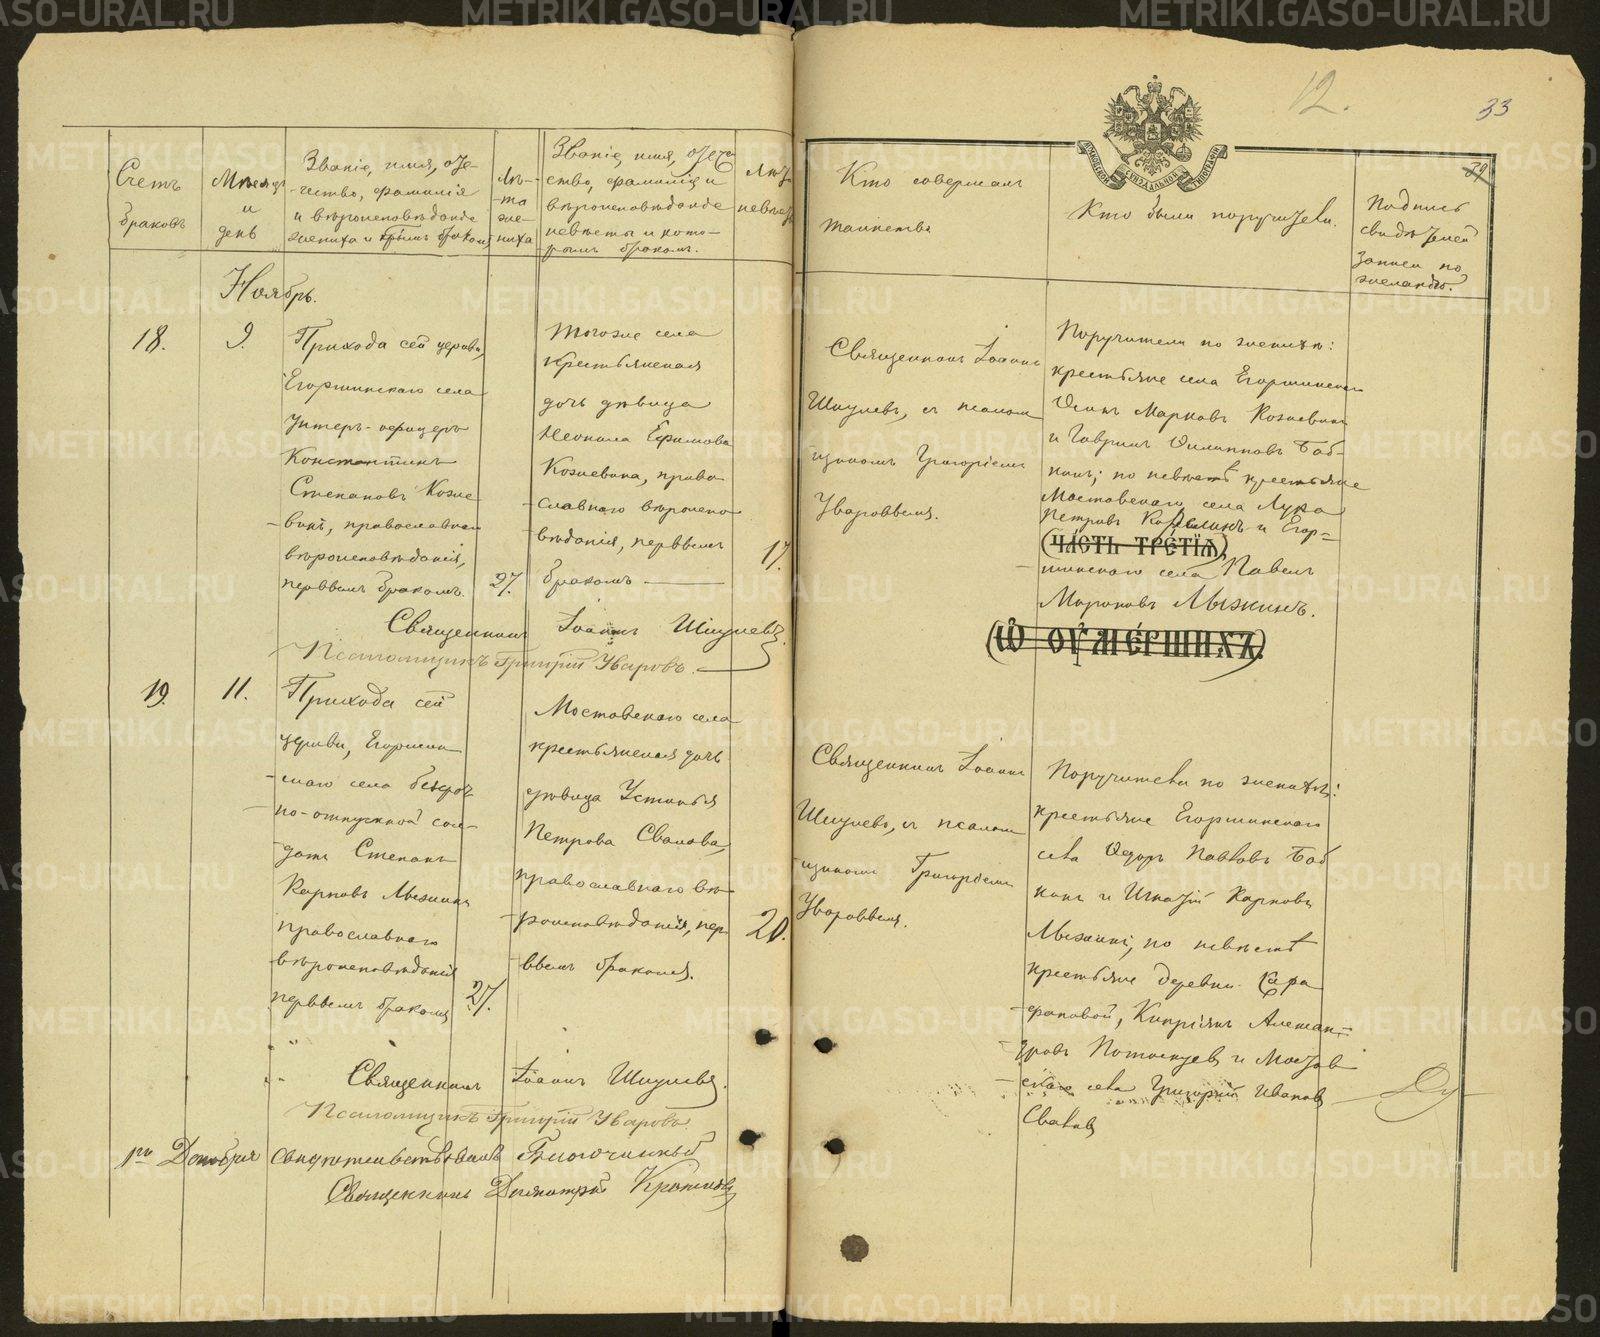 12.
33
39
Счетъ
браковъ
Мѣсяцъ
и
день
Званіе, имя, оте-
-чество, фамилія
и вѣроисповѣданіе
жениха и которымъ бракомъ
Лѣ-
-та
же-
ниха
Званіе, имя, отче-
ство, фамилія и
вѣроисповѣданіе
невѣсты и кото-
рымъ бракомъ.
Лѣта
невѣсты
Кто совершалъ
таинство
Кто были поручители.
Подпись
свидѣтелей
записи по
желанію.
МОСКОВСКОЙ СИНОДАЛЬНОЙ ТИПОГРАФІИ
Ноябрь.
18.
9.
Прихода сей церкви,
Егоршинскаго села
унтеръ-офицеръ
Константинъ
Степановъ Козле
-винъ, православнаго
вѣроисповѣданія,
первымъ бракомъ.
27.
тогоже села
крестьянская
дочь дѣвица
Неонила Ефимова
Козлевина, право
-славнаго вѣроиспо
-вѣданія, первымъ
бракомъ
17.
Священникъ Іоаннъ Шишевъ.
Псаломщикъ Григорій Уваровъ.
Священникъ Іоаннъ
Шишевъ, съ псалом
-щикомъ Григоріемъ
Уваровымъ.
Поручители по женихѣ:
крестьяне села Егоршинскаго
Осипъ Марковъ Козлевинъ
и Гаврилъ Филипповъ Баб-
кинъ; по невѣстѣ крестьяне
Мостовскаго села Лука
Петровъ и Егор=
(ЧАСТЬ ТРЕТІЯ)
-шинскаго села Павелъ
Мироновъ Мызкинъ.
(Ѡ ОУМЕРШИХЪ.)
19.
11.
Прихода сей
церкви, Егоршин
-скаго села безсроч-
но-отпускной сол-
датъ Степанъ
Карповъ Мызкинъ
православнаго
вѣроисповѣданія
первымъ бракомъ
27.
Мостовскаго села
крестьянская дочь
дѣвица Устинья
Петрова Свалова,
православнаго вѣ-
-роисповѣданія, пер
-вымъ бракомъ.
20.
Священникъ Іоаннъ
Шишевъ, съ псалом
-щикомъ Григоріемъ
Уваровымъ.
Поручители по женихѣ:
крестьяне Егоршинскаго
села Ѳедоръ Павловъ Баб
кинъ и Игнатій Карповъ
Мызкинъ; по невѣстѣ
крестьяне деревни Сара
-фановой, Кипріянъ Алексан-
-дровъ Потоскуевъ и Мостов
-скаго села Григорій Ивановъ
Сваловъ
Священникъ Іоаннъ Шишевъ.
Псаломщикъ Григорій Уваровъ
1го Декабря свидѣтельствовалъ Благочинный
Священникъ Димитрій
METRIKI.GASO-URAL.RU